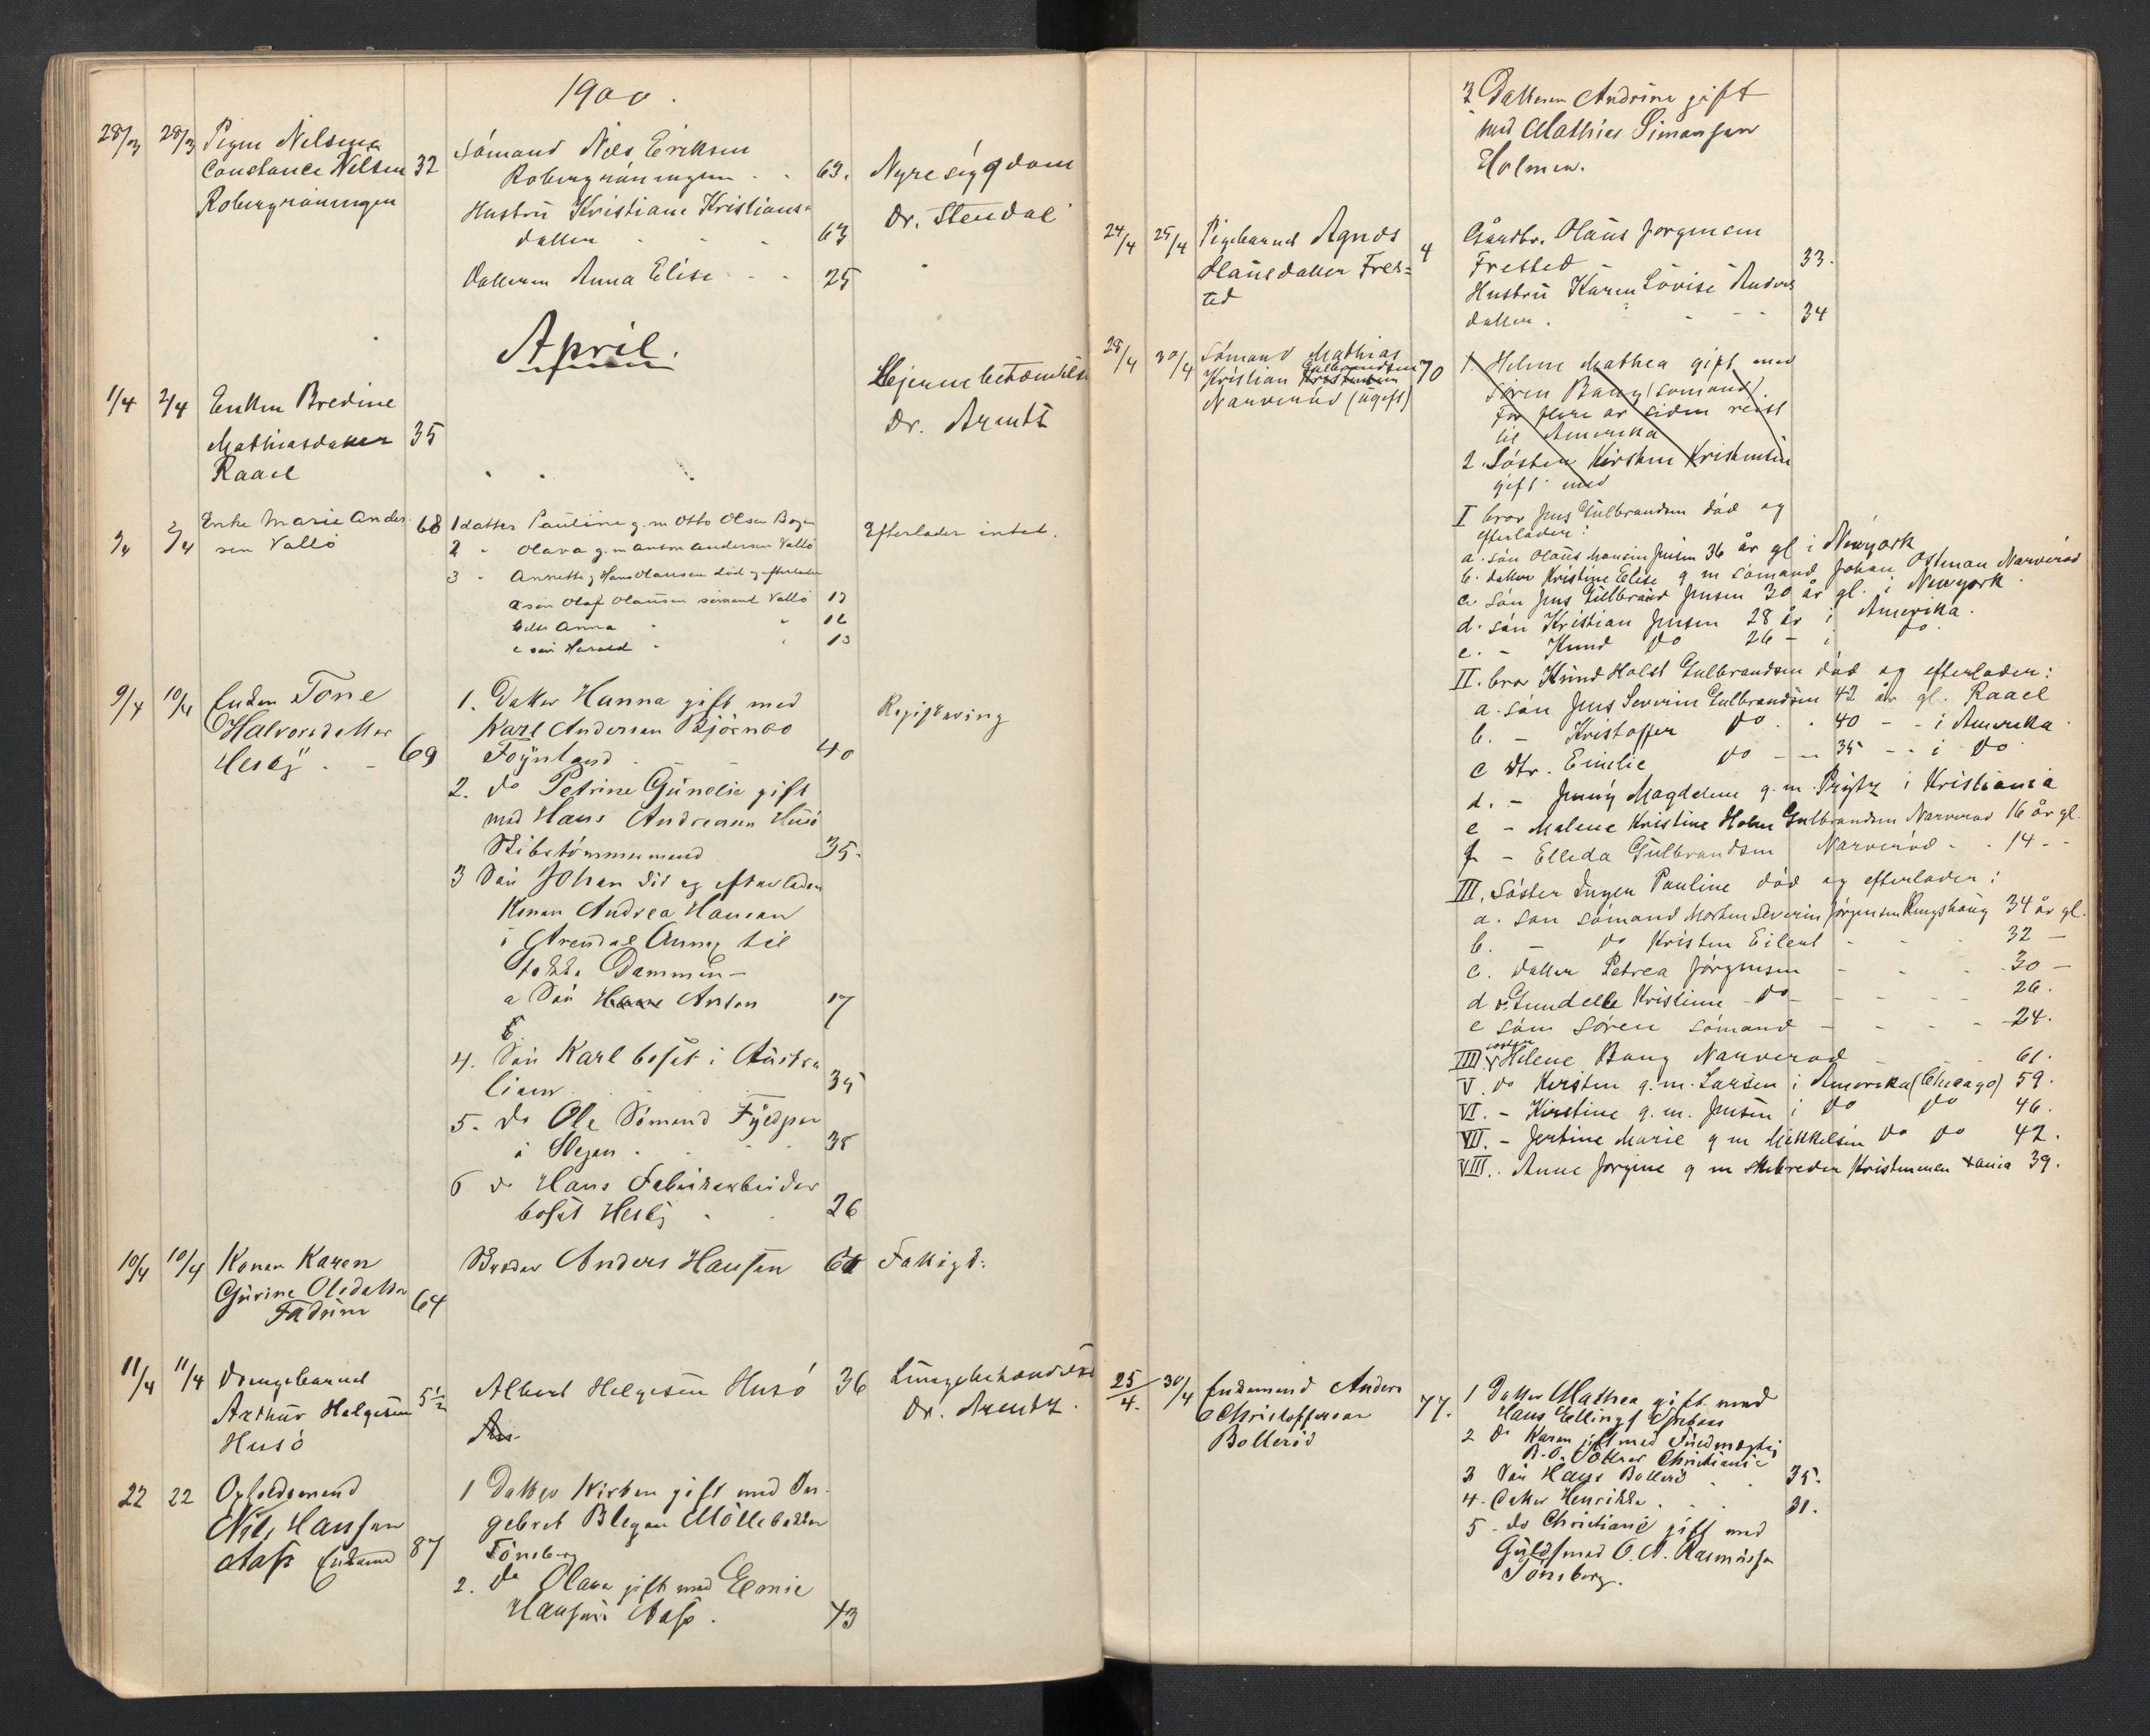 1900.
28/3 28/3 Pigen Nilsine
Constance Nilsen 32
Robergröningen
Sömand Nils Eriksen
Robergröningen . . 63.
Hustrú Kristiane Kristians-
datter . . . 63
Datteren Anna Elise . . 25
Nyresygdom
Dr. Stendal
April.
1/4 2/4 Enken Bredine
Mathiasdatter 35
Raael
Hjernebetændelse
Dr. Arentz
2/4 3/4 Enke Marie Ander-
sen Vallö 68
1 datter Pauline g. m Otto Olsen
2 " Olava g. m Anton Andersen Vallö
3 " Annette g Hans Olausen död og efterlader
a sön Olaf Olausen sömand Vallö 17
b dtr Anna " " 16
c sön Harald " " 13
Efterlader intet.
9/4 10/4 Enken Tone
Halvorsdatter
Hesby . - 69
1. Datter Hanna gift med
Karl Andersen Björnebo
Föynland . . 40
2. do Petrine Gunelie gift
med Hans Andreasen Husö
Skibstömmermand 35.
3 Sön Johan död og efterlader
Konen Andrea Hansen
i Arendal Anmg til
a Sön Hans Anton 17
b.
4. Sön Karl bosat i Austra
lien . . . 35
5. do Ole Sömand
i Slagen . . 38
6 do Hans Fabrikarbeider
bosat Hesby . . 26
Registrering
10/4 10/4 Konen Karen
Gurine Olsdatter 64
Fadum
Broder Anders Hansen 61
Fattigt:
11/4 11/4 Drengebarnet
Arthur Helgesen 5½
Husö
Albert Helgesen Husö 36
An
Lungebetændelse
Dr. Arentz.
22 22 Opholdsmand
Nils Hansen
Aase Enkemd 87
1 Datter Kirsten gift med In-
gebret Blegen Möllebakken
Tönsberg
2. do Olava gift med
Hansen Aase . 43
3 Datteren Andrine gift
med Mathias Simonsen
Holmen.
24/4 25/4 Pigebarnet Agnes
Olausdatter Fres= 4
ted
Gårdbr. Olaus Jörgensen
Frested - 33.
Hustrú Karen Lovise Anders
datter . - - - 34
28/4 30/4 Sömand Mathias
Kristian Kristensen Gulbrandsen 70
Narveröd (ugift)
1. Helene Mathea gift med
Sören Bang (sömand).
for flere år siden reist
til Amerika
2. Söster Kirsten Kristensen
gift med
I bror Jens Gulbrandsen död og
efterlader:
a. sön Olaus Jensen 36 år gl i Newyork
b. datter Kristine Elise g m sömand Johan Ostman Narveröd
c sön Jens Gulbrand Jensen 30 år gl. i Newyork.
d. sön Kristian Jensen 28 år i Amerika.
e. - Knud do 26 - i do.
II. bror Knud Holst Gulbrandsen död og efterlader:
a. sön Jens Severin Gulbrandsen 42 år gl. Raael
b. - Kristoffer do . . 40 - - i Amerika.
c dtr. Emelie do - - 35 - - i do.
d. - Jenny Magdalene g. m. Prytz i Kristiania
e - Malene Kristine Holm Gulbrandsen Narveröd 16 år gl.
f - Elleda Gulbrandsen Narveröd - . 14 - -
III. Söster Inger Pauline död og efterlader:
a. sön sömand Morten Severin Jörgensen Ringshaug 34 år gl.
b. - do Kristen Eilert - - - 32 -
c. datter Petrea Jörgensen - - - 30 -
d Gundelle Kristiane do - - - 26.
e sön Sören sömand - - - 24.
IIII söster Helene Bang Narveröd - - 61.
V. do Kirsten g. m. Larsen i Amerika (Chicago) 59.
VI. - Kirstine g. m. Jensen i do do 46.
VII. - Jertine Marie g m Mikkelsen do do 42.
VIII. Anne Jörgine g m Kristensen Xania 39.
25/4. 30/4 Enkemand Anders
Christoffersen 77.
Bolleröd
1 Datter Mathea gift med
Hans Ellingsen
2 do Karen gift med Fuldmægtig
Christiania
3 Sön Hans Bolleröd . . 35.
4. Datter Henrikke . . . 31.
5 - do Christiane gift med
Guldsmed O. A. Rasmussen
Tönsberg.